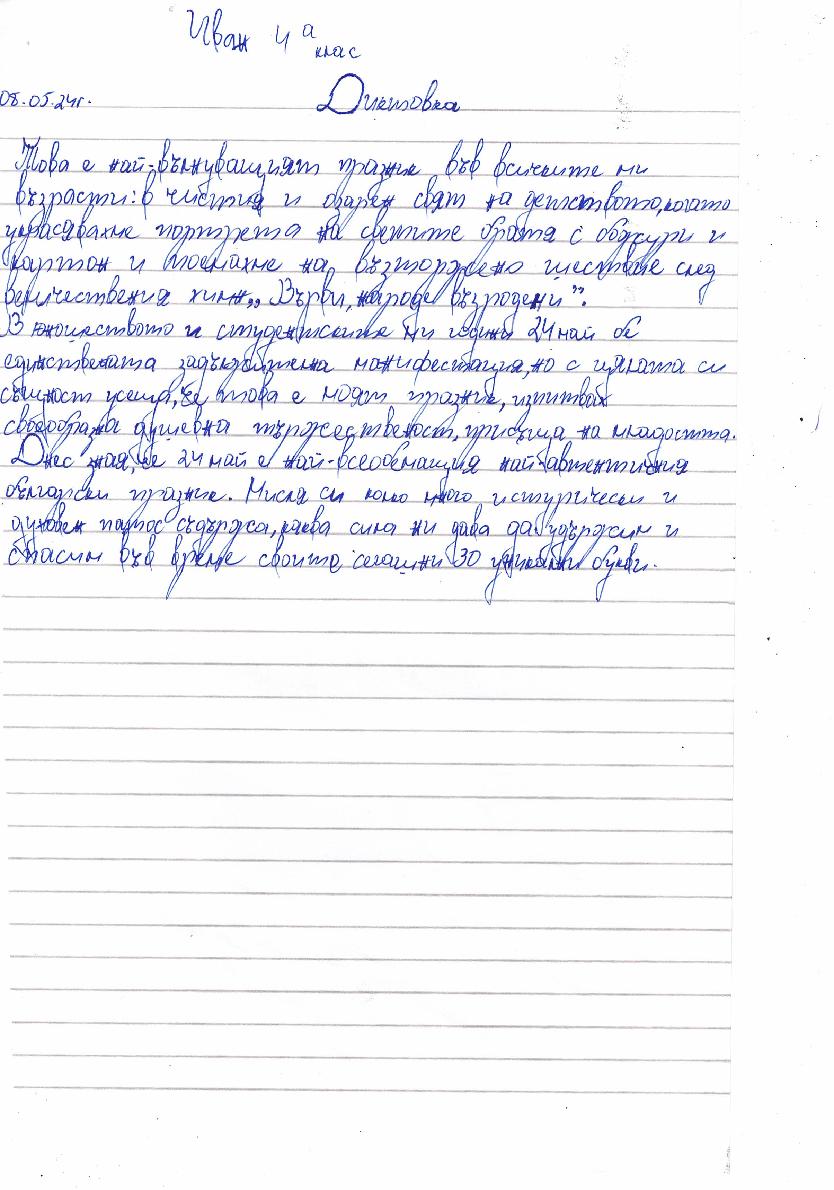 Иван 4 а
клас
08.05.24г.
Диктовка
Това е най-вълнуващият празник във всичките ми
възрасти: в чистия и озарен свят на детството, когато
украсявахме портрета на светите братя с божури и
картон и поемахме на възторжено шествие след
величествения химн „Върви, народе възродени”.
В юношеството и студентските ми години 24 май бе
единствената задължителна манифестация, но с цялата си
същност усещах, че това е моят празник, изпитвах
своеобразна душевна тържественост, присъща на младостта.
Днес зная, че 24 май е най-всеобемащия най-автентичния
български празник. Мисля си колко много исторически и
духовен патос съдържа, каква сила ни дава да удържим и
спасим във време своите сегашни 30 уникални букви.